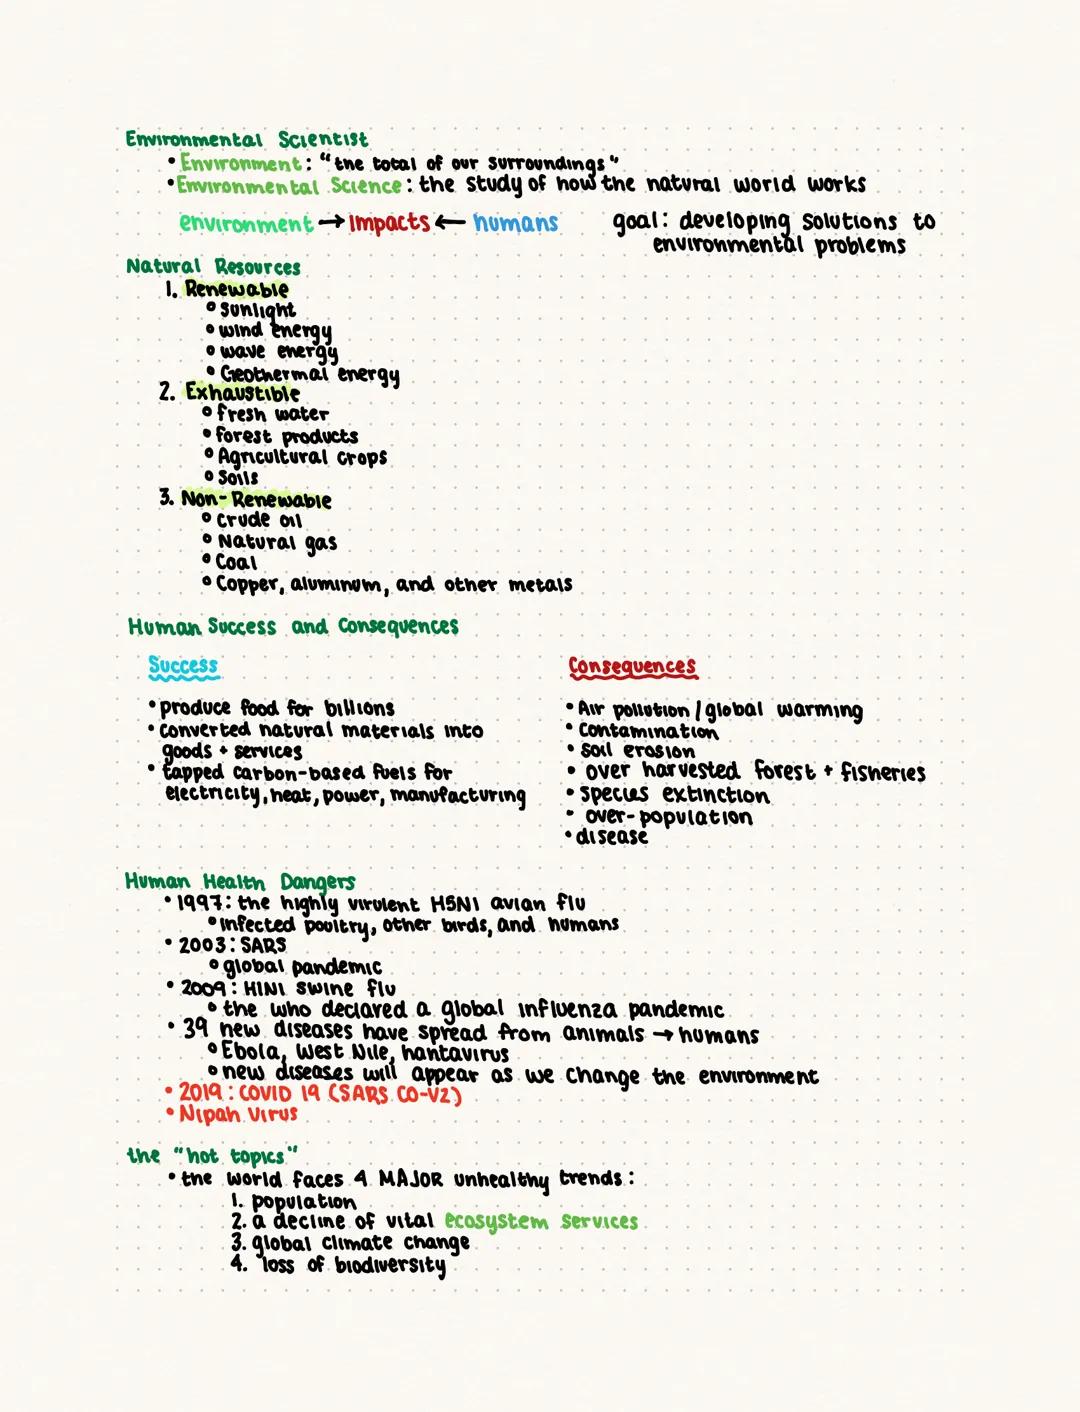 Environmental Scientist
• Environment: "the total of our surroundings"
• Environmental Science: the study of how the natural world works
environment → impacts ← humans goal: developing solutions to
environmental problems
Natural Resources
1. Renewable
• sunlight
• wind energy
• wave energy
• Geothermal energy
2. Exhaustible
• fresh water
• forest products
• Agricultural crops
• Soils
3. Non-Renewable
• crude oil
• Natural gas
• Coal
• Copper, aluminum, and other metals
Human Success and Consequences
Success
• produce food for billions
• converted natural materials into
goods + services
• tapped carbon-based fuels for
electricity, heat, power, manufacturing
Consequences
• Air pollution / global warming
• contamination
• soil erosion
• over harvested forest + fisheries
• species extinction
• over-population
• disease
Human Health Dangers
• 1997: the highly virulent H5N1 avian flu
• infected poultry, other birds, and humans
• 2003: SARS
• global pandemic
• 2009: H1N1 swine flu
• the who declared a global influenza pandemic
• 39 new diseases have spread from animals → humans
• Ebola, West Nile, hantavirus
• new diseases will appear as we change the environment
• 2019: COVID 19 (SARS CO-V2)
• Nipah Virus
the "hot topics"
• the world faces 4 MAJOR unhealthy trends:
1. population
2. a decline of vital ecosystem services
3. global climate change
4. loss of biodiversity